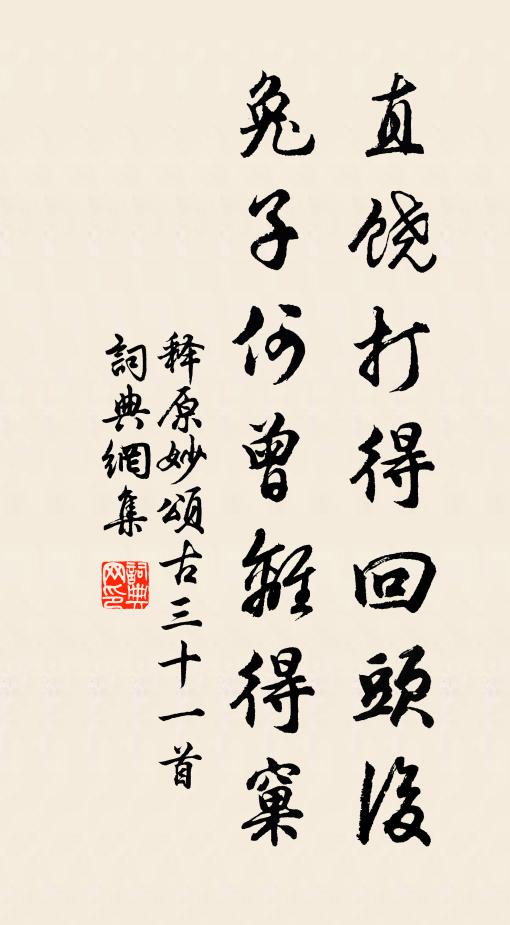 直饶打得回頭後
兔子何曾離得窠
释原妙頌古三十一首
詞典網集
詞典网印